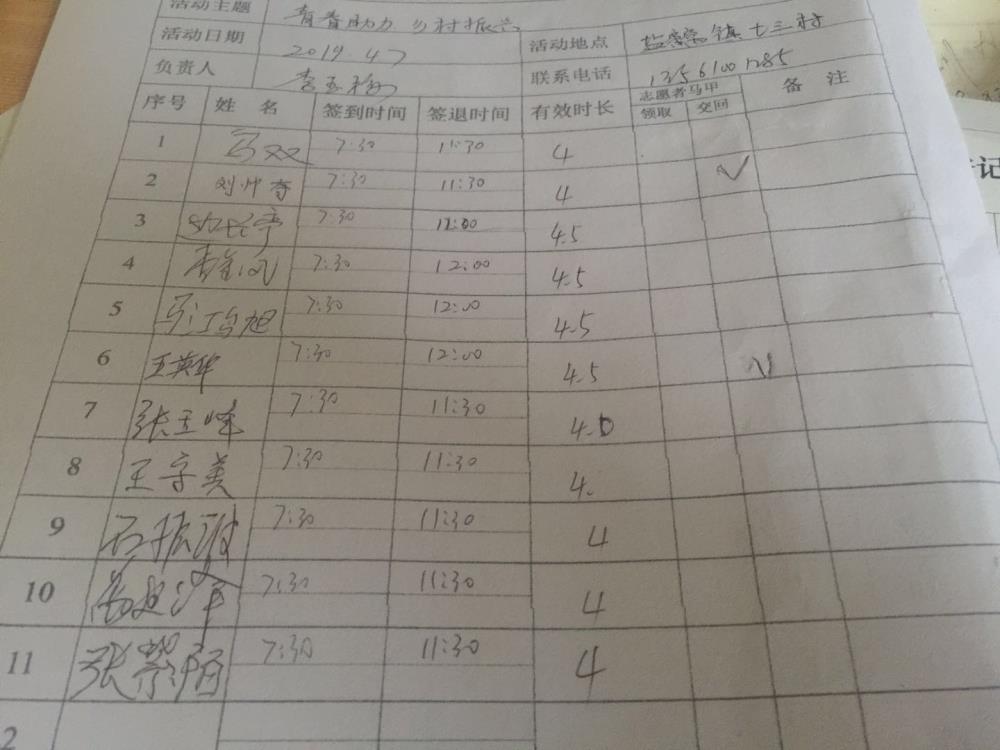 活动主题 青春助力 乡村振兴
活动日期 2019.4.7 活动地点 镇七三村
负责人 李玉 联系电话 13561001285
序号 姓名 签到时间 签退时间 有效时长 志愿者马甲 备注
领取 交回
1 马双 7:30 11:30 4
2 刘帅奇 7:30 11:30 4 √
3 7:30 12:00 4.5
4 7:30 12:00 4.5
5 7:30 12:00 4.5
6 王英华 7:30 12:00 4.5 √
7 张玉峰 7:30 11:30 4.0
8 王守美 7:30 11:30 4.
9 石振波 7:30 11:30 4
10 7:30 11:30 4
11 张 7:30 11:30 4
2
记